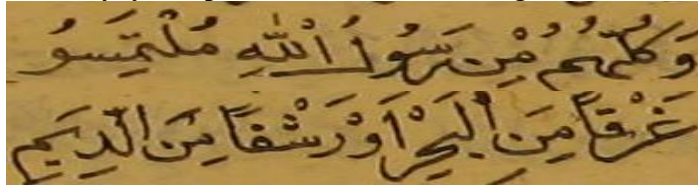 وَكُلُّهُمُ مِّنْ رَسُولِ اللّٰهِ مُلْتَمِسٌ
غَرْفًا مِّنَ الْبَحْرِ اَوْ رَشْفًا مِّنَ الدِّيَمِ